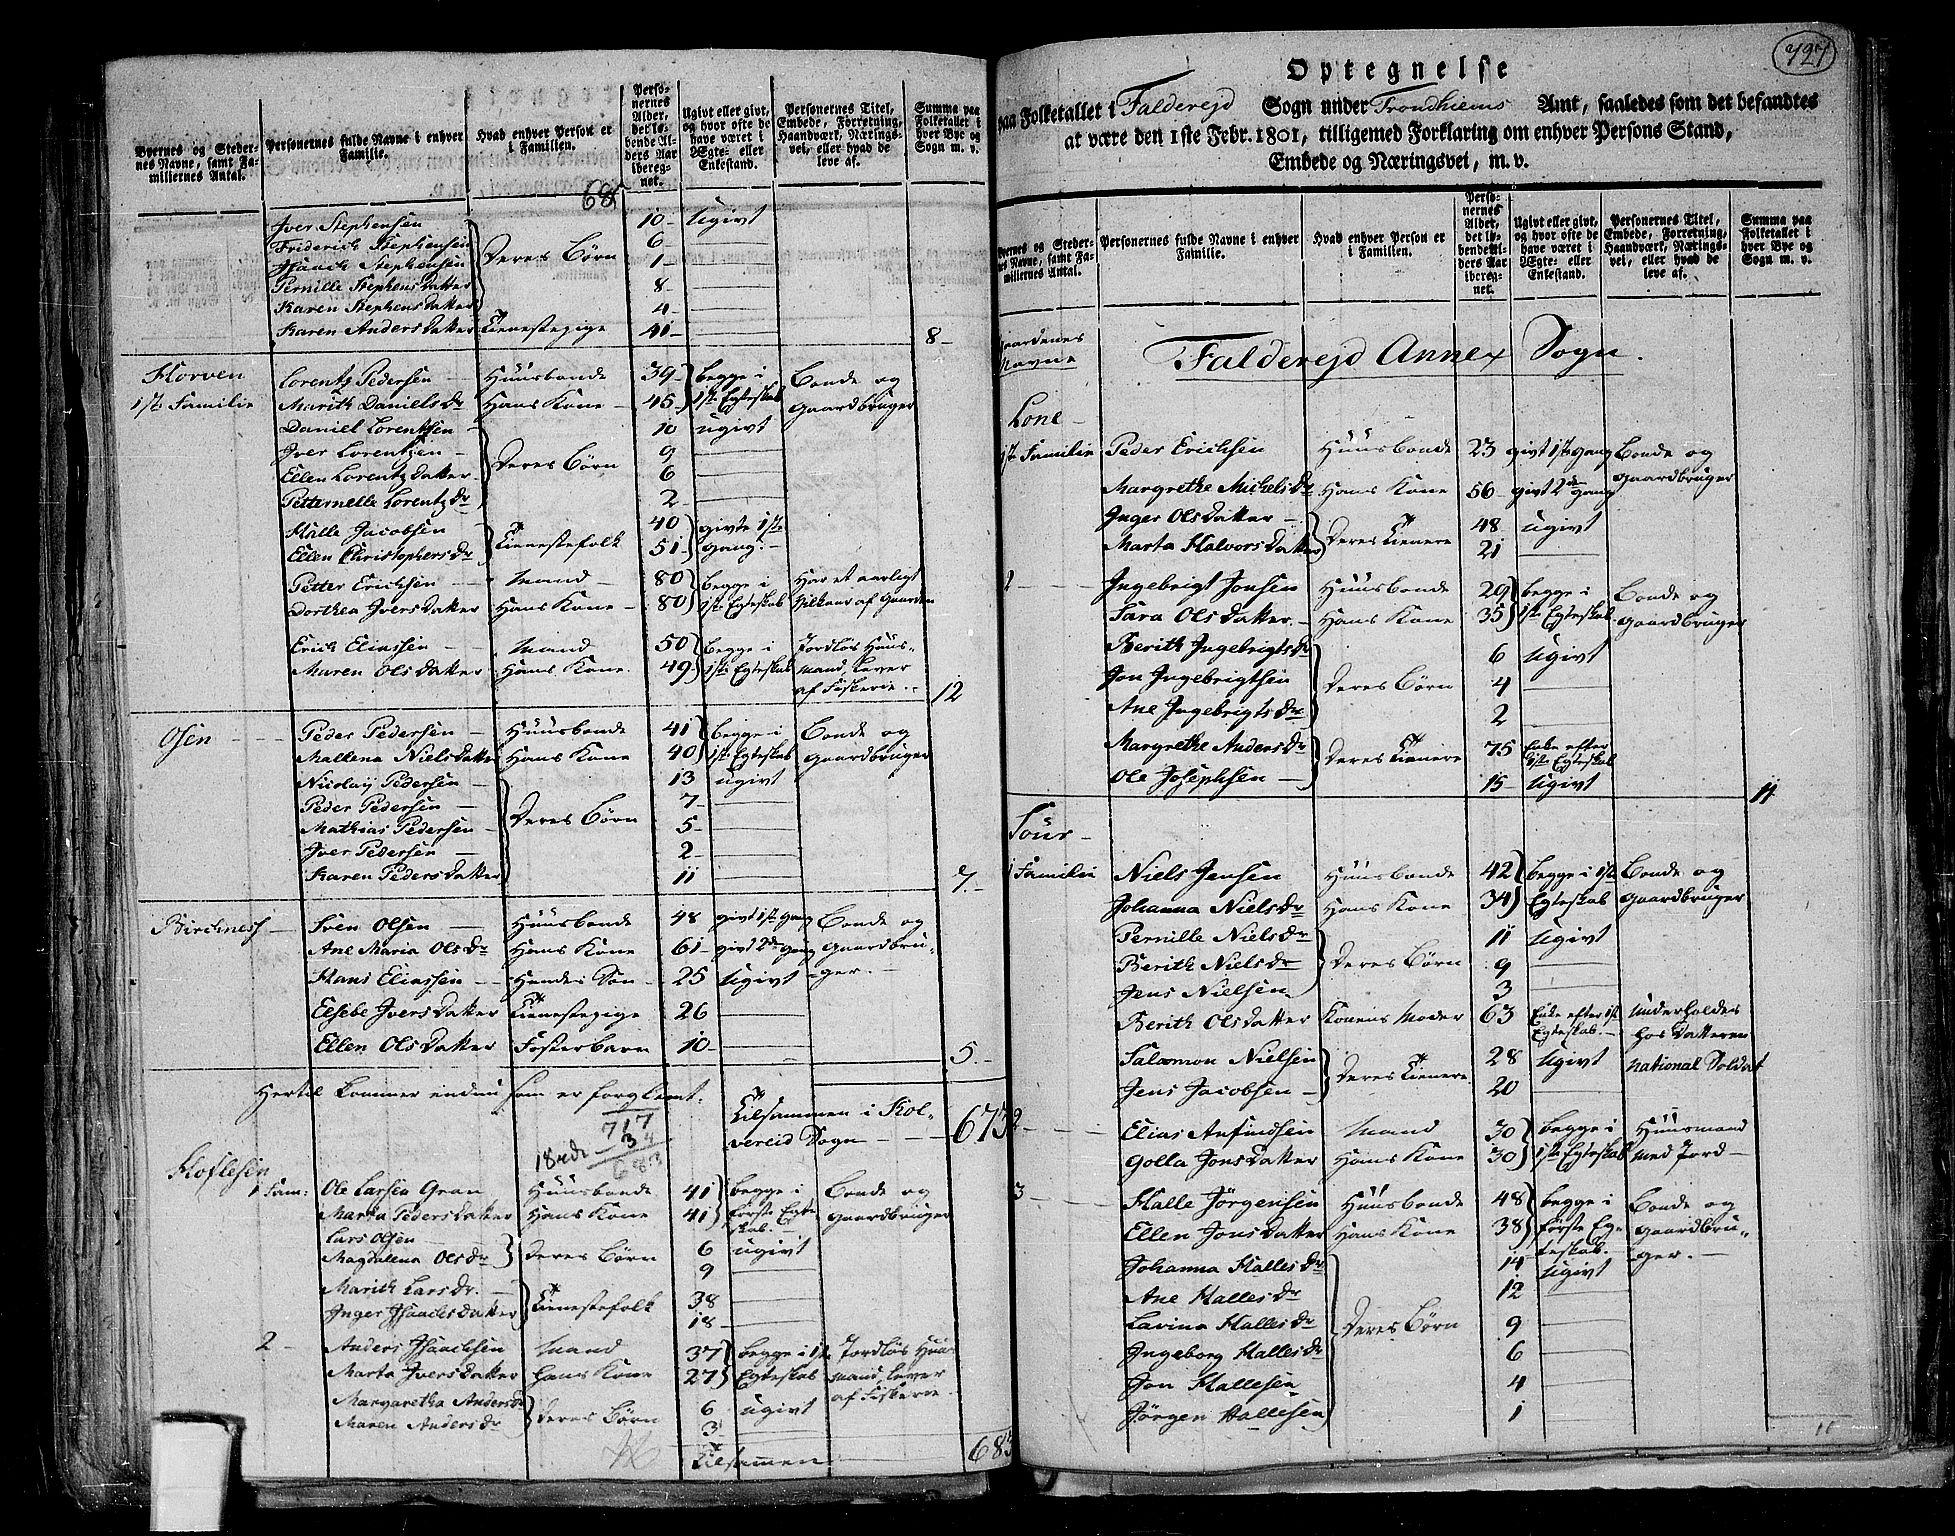 Byernes og Stedernes Navne, samt Familiernes Antal.
Personernes fulde Navne i enhver Familie.
Hvad enhver Person er i Familien.
Personernes Alder, det løbende Alders Aar iberegnet.
Ugivt eller givt, og hvor ofte de have været i Ægte- eller Enkestand.
Personernes Titel, Embede, Forretning, Haandværk, Næringsvei, eller hvad de leve af.
Summa paa Folketallet i hver Bye og Sogn m. v.
Jver Stephensen 10 ugivt
Friderich Stephensen 6
Jsaach Stephensen Deres Børn 1
Pernille Stephensdatter 8
Karen Stephensdatter 4
Karen Andersdatter Tienestepige 41 8
Horven Lorentz Pedersen Huusbonde 39 begge i Bonde og
1ste Familie Marith Danielsdr Hans Kone 45 1ste Egteskab Gaardbruger
Daniel Lorentsen 10 ugivt
Jver Lorentzen 9
Ellen Lorentzdatter Deres Børn 6
Petternelle Lorentzdr 2
Halle Jacobsen 40 givte 1ste
Ellen Christophersdr Tienestefolk 51 gang.
Petter Erichsen Mand 80 begge i Har et aarligt
Dorthea Jversdatter Hans Kone 80 1ste Egteskab Vilkaar af Gaarden
Erich Eliassen Mand 50 begge i Jordløs Huus-
Maren Olsdatter Hans Kone 49 1ste Egteskab mand, lever
af Fiskerie. 12
Osen Peder Pedersen Huusbonde 41 begge i Bonde og
Mallena Nielsdatter Hans Kone 40 1ste Egteskab Gaardbruger
Nicolaij Pedersen 13 ugivt
Peder Pedersen 7
Mathias Pedersen Deres Børn 5
Jver Pedersen 2
Karen Pedersdatter 11 7
Birchness Sven Olsen Huusbonde 48 givt 1ste gang Bonde og
Ane Maria Olsdr Hans Kone 61 givt 2de gang Gaardbru-
Hans Eliassen Hendes Søn 25 ugivt ger.
Elsebe Jversdatter Tienestepige 26
Ellen Olsdatter Fosterbarn 10 5
Hertil kommer endnu som er forglemt.
Tilsammen i Kol-
vereid Sogn 673
717
34
683
Hoflesen
1 Fam: Ole Larsen Gran Huusbonde 41 begge i Bonde og
Marta Pedersdatter Hans Kone 41 første Egte- Gaardbruger
skab.
Lars Olsen 6 ugivt
Magdalena Olsdr Deres Børn 9
Marith Larsdr. 38
Jnger Jsaachsdatter Tienestefolk 18
2 Anders Jsaachsen Mand 37 begge i 1ste Jordløs Huus-
Marta Jversdatter Hans Kone 27 Egteskab mand, lever
af Fiskerie.
Margaretha Andersdr 6 ugivt
Maren Andersdr Deres Børn 3
Tilsammen 683
727
Optegnelse
paa Folketallet i Falderejd Sogn under Trondhiems Amt, saaledes som det befandtes
at være den 1ste Febr. 1801, tilligemed Forklaring om enhver Persons Stand,
Embede og Næringsvei, m. v.
Byernes og Stedernes Navne, samt Familiernes Antal.
Personernes fulde Navne i enhver Familie.
Hvad enhver Person er i Familien.
Personernes Alder, det løbende Alders Aar iberegnet.
Ugivt eller givt, og hvor ofte de have været i Ægte- eller Enkestand.
Personernes Titel, Embede, Forretning, Haandværk, Næringsvei, eller hvad de leve af.
Summa paa Folketallet i hver Bye og Sogn m. v.
Gaardenes Navne
Falderejd Annex Sogn.
Lone
1ste Familie Peder Erichsen Huusbonde 23 givt 1ste gang Bonde og
Margrethe Michelsdr Hans Kone 56 givt 2de gang Gaardbruger
Jnger Olsdatter 48 ugivt
Marta Halvorsdatter Deres Tienere 21
2 Jngebrigt Jonsen Huusbonde 29 begge i Bonde og
Sara Olsdatter Hans Kone 35 1ste Egteskab Gaardbruger
Berith Jngebrigtsdr 6 ugivt
Jon Jngebrigtsen Deres Børn 4
Ane Jngebrigtsdr 2
Margrethe Andersdr Deres Tienere 75 Enke efter 1ste Egteskab
Ole Josephsen 15 ugivt 11
1 Familie Niels Jensen Huusbonde 42 begge i 1ste Bonde og
Johanna Nielsdr Hans Kone 34 Egteskab Gaardbruger
Pernille Nielsdr 11 ugivt
Berith Nielsdr Deres Børn 9
Jens Nielsen 3
Berith Olsdatter Konens Moder 63 Enke efter 1ste Egteskab. Underholdes hos Datteren
Salomon Nielsen 28 ugivt National Soldat
Jens Jacobsen Deres Tienere 20
2 Elias Anfindsen Mand 30 begge i Huusmand
Golla Jonsdatter Hans Kone 30 1ste Egteskab med Jord
3 Halle Jørgensen Huusbonde 48 begge i Bonde og
Ellen Jonsdatter Hans Kone 38 første Eg- Gaardbru-
teskab. ger.
Johanna Hallesdr 14 ugivt
Ane Hallesdr 12
Lavina Hallesdr Deres Børn 9
Jngeborg Hallesdr 6
Jon Hallesen 4
Jørgen Hallesen 1